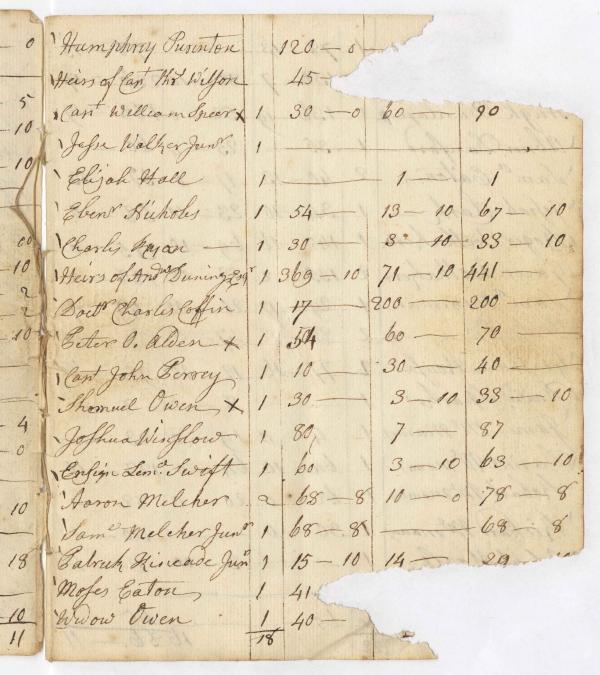 0 Humphrey Purinton 120 — 0 —
Heirs of Capt Thos Wilson 45 —
5 Capt William Speer x 1 30 — 0 60 — 90
10 Jesse Walker Junr 1 — — —
10 Elijah Hall 1 — 1 — 1
Ebenr Nichols 1 54 — 13 — 10 67 — 10
00 Charles Ryan — 1 30 — 3 — 10 33 — 10
10 Heirs of Andw Duning Esqr 1 369 — 10 71 — 10 441 —
2 Doctr Charles Coffin 1 17 — 200 — 200 —
10 Peter O. Alden x 1 60 — 70 —
Capt John Perrey 1 10 — 30 — 40 —
Shomuel Owen x 1 30 — 3 — 10 33 — 10
4 Joshua Winslow 1 80 7 — 87
0 Ensign Leml Swift 1 60 3 — 10 63 — 10
10 Aaron Melcher 2 68 — 8 10 — 0 78 — 8
Saml Melcher Junr 1 68 — 8 — 68 — 8
18 Patrick Kincade Junr 1 15 — 10 14 — 29 10
Moses Eaton 1 41
10 Widow Owen 1 40 —
11 18